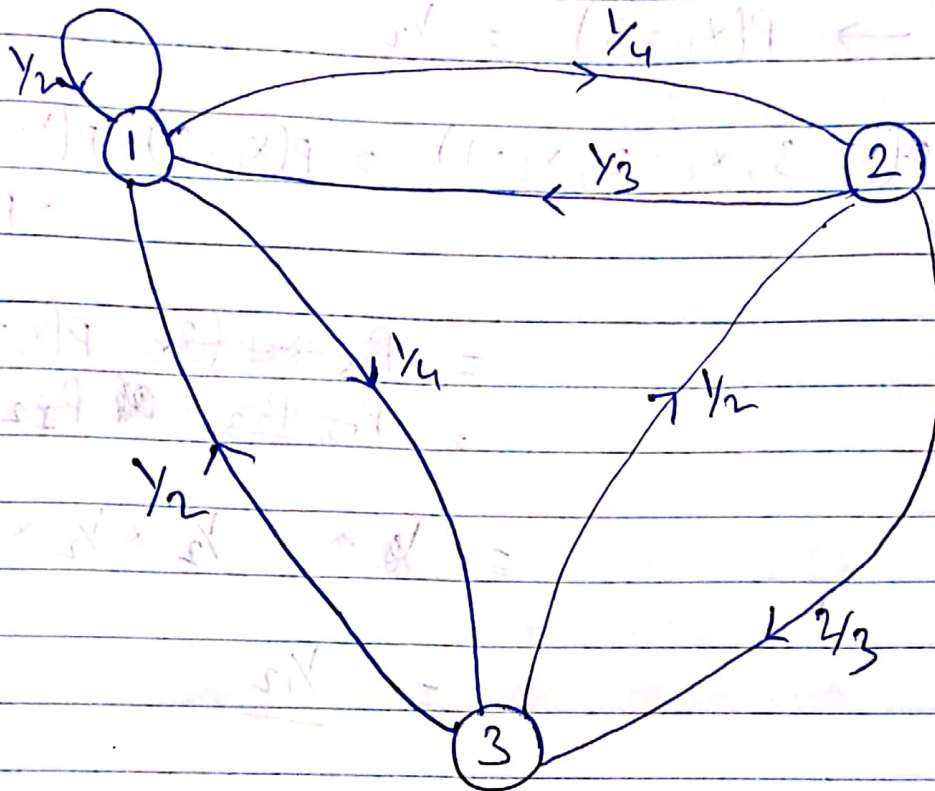 1/4
1/2
1
1/3
2
1/4
1/2
1/2
2/3
3